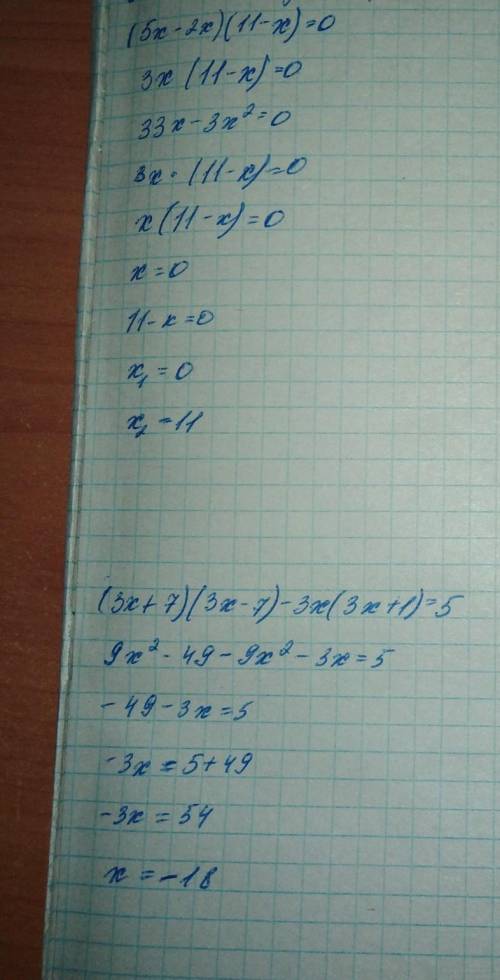 (5x-2x)(11-x)=0
3x(11-x)=0
33x-3x²=0
3x·(11-x)=0
x(11-x)=0
x=0
11-x=0
x₁=0
x₂=11
(3x+7)(3x-7)-3x(3x+1)=5
9x²-49-9x²-3x=5
-49-3x=5
-3x=5+49
-3x=54
x=-18